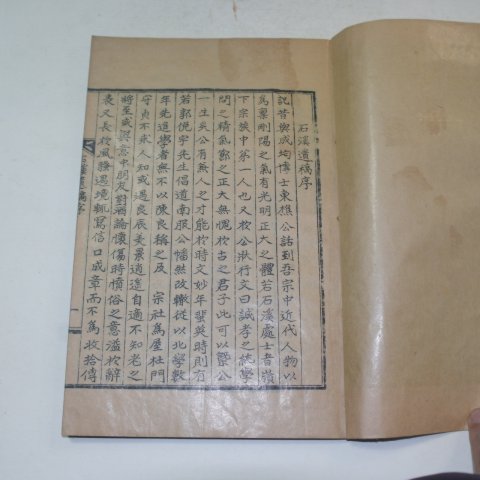 石溪遺稿序
記昔與成均博士東樵公話到吾宗中近代人物以
為稟剛陽之氣有光明正大之體若石溪處士者嶺
下宗族中第一人也又於公狀行文曰誠孝之純學
問之精氣節之正大無愧於古之君子此可以槩公
一生矣公有無人之才能於時文妙年蜚英時則有
若郭俛宇先生倡道南服公幡然改轍從以北學數
年先進學者無不以陳良稱之及 宗社為屋杜門
守貞不求人知或遇良辰美景逍遙自適不知老之
將至或與高中朋友對酒論懷傷時憤俗之意溢於辭
表又長於風騷遇境輒寫信口成章而不為收拾傳
石溪遺稿序
一